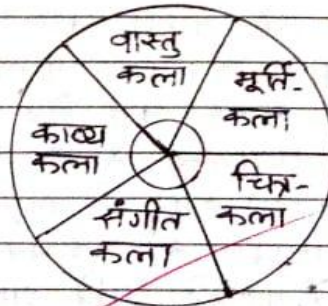 वास्तु
कला
मूर्ति-
कला
चित्र-
कला
संगीत
कला
काव्य
कला